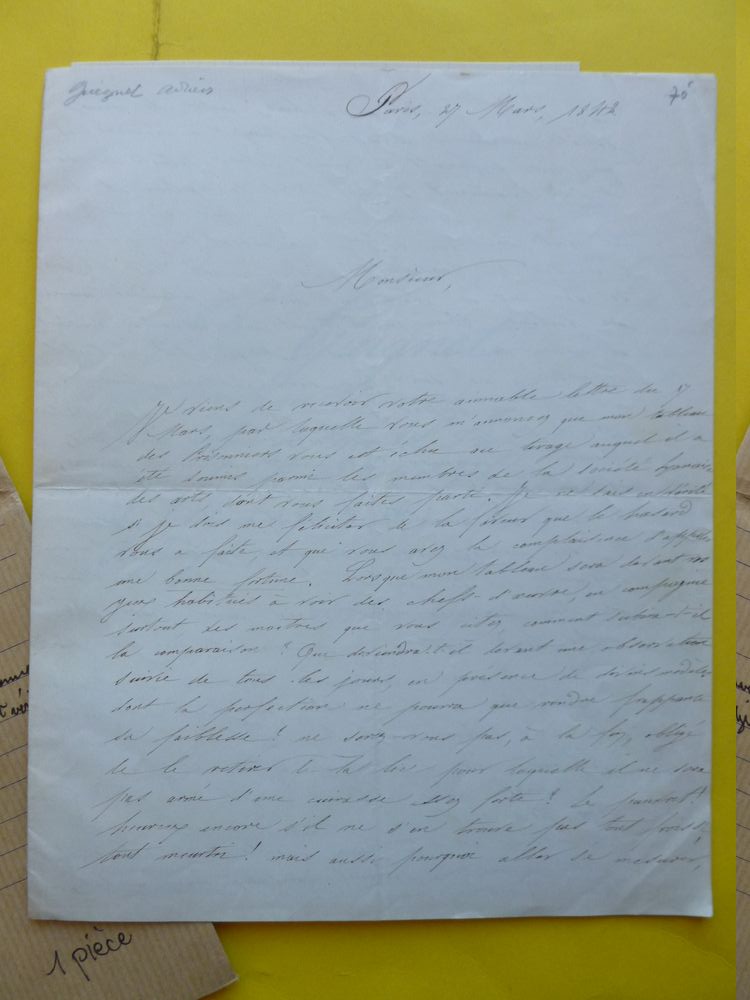 Guignet Adrien
75
Paris, 27 Mars, 1842
Monsieur,
Je viens de recevoir votre aimable lettre du 7
Mars, par laquelle vous m'annoncez que mon tableau
des Prisonniers vous est échu au tirage auquel il a
été soumis parmi les membres de la société
des arts dont vous faites partie. Je ne sais en vérité
si je dois me féliciter de la faveur que le hasard
vous a faite, et que vous avez la complaisance d'appeler
une bonne fortune. Lorsque mon tableau sera devant vos
yeux habitués à voir des chefs-d'œuvre, en compagnie
surtout des maîtres que vous citez, comment soutiendra-t-il
la comparaison? Que deviendra-t-il devant une observation
suivie de tous les jours, en présence de divins modèles
dont la perfection ne pourra que rendre frappante
sa faiblesse! ne serez-vous pas, à la fin, obligé
de le retirer de la lice pour laquelle il ne sera
pas armé d'une cuirasse assez forte? le
heureux encore s'il ne s'en trouve pas tout
tout meurtri! mais aussi pourquoi aller se mesurer,
1 pièce